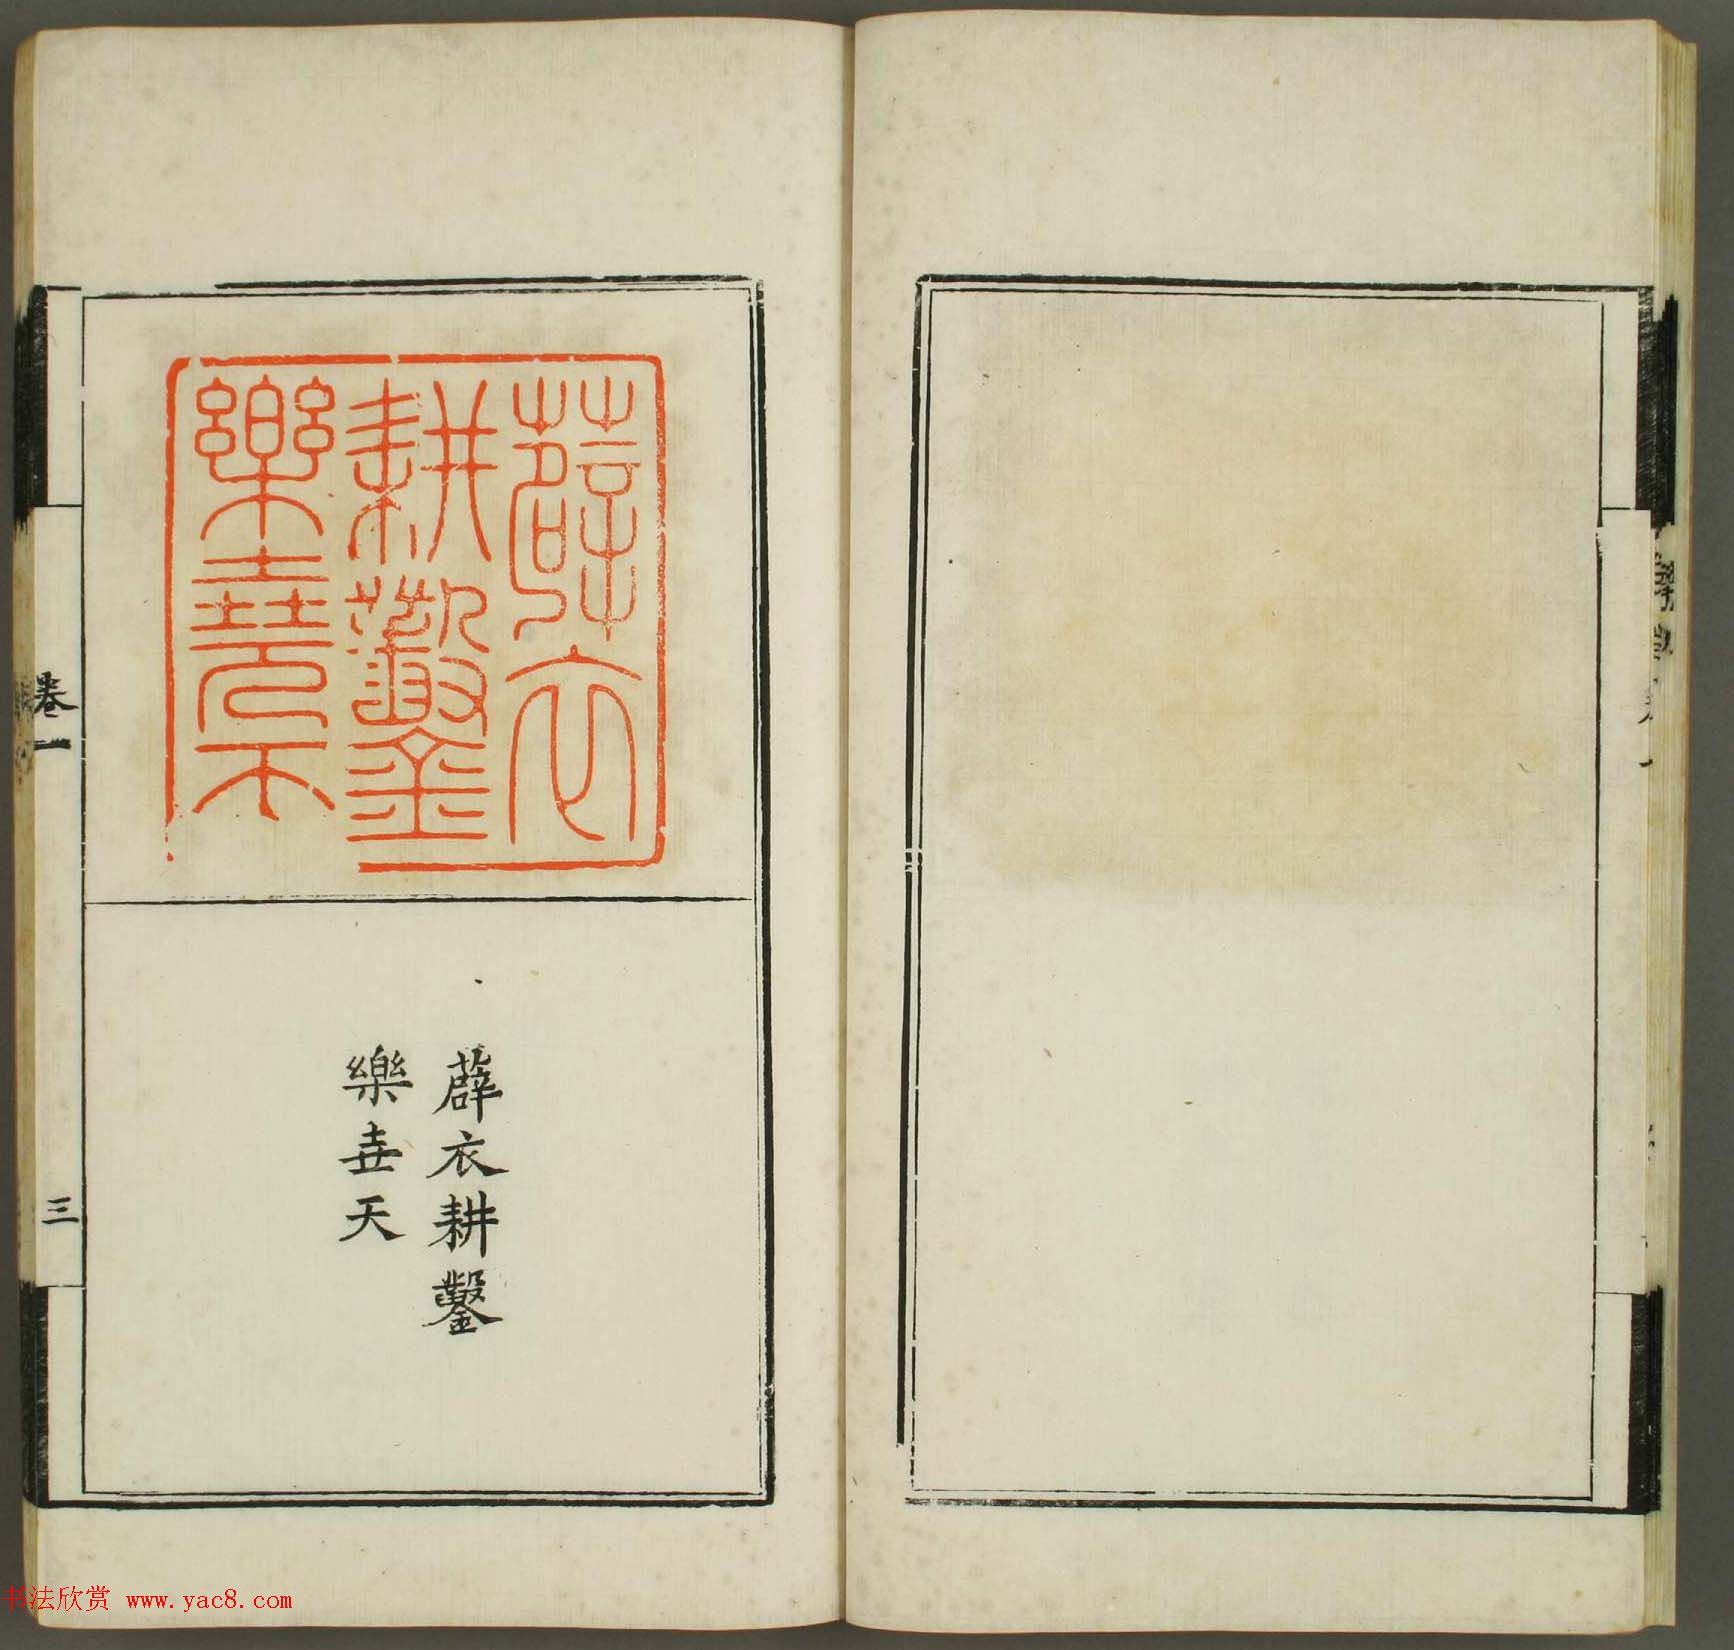 薜衣
耕鑿
樂堯天
薜衣耕鑿
樂垚天
卷一
三
书法欣赏 www.yac8.com